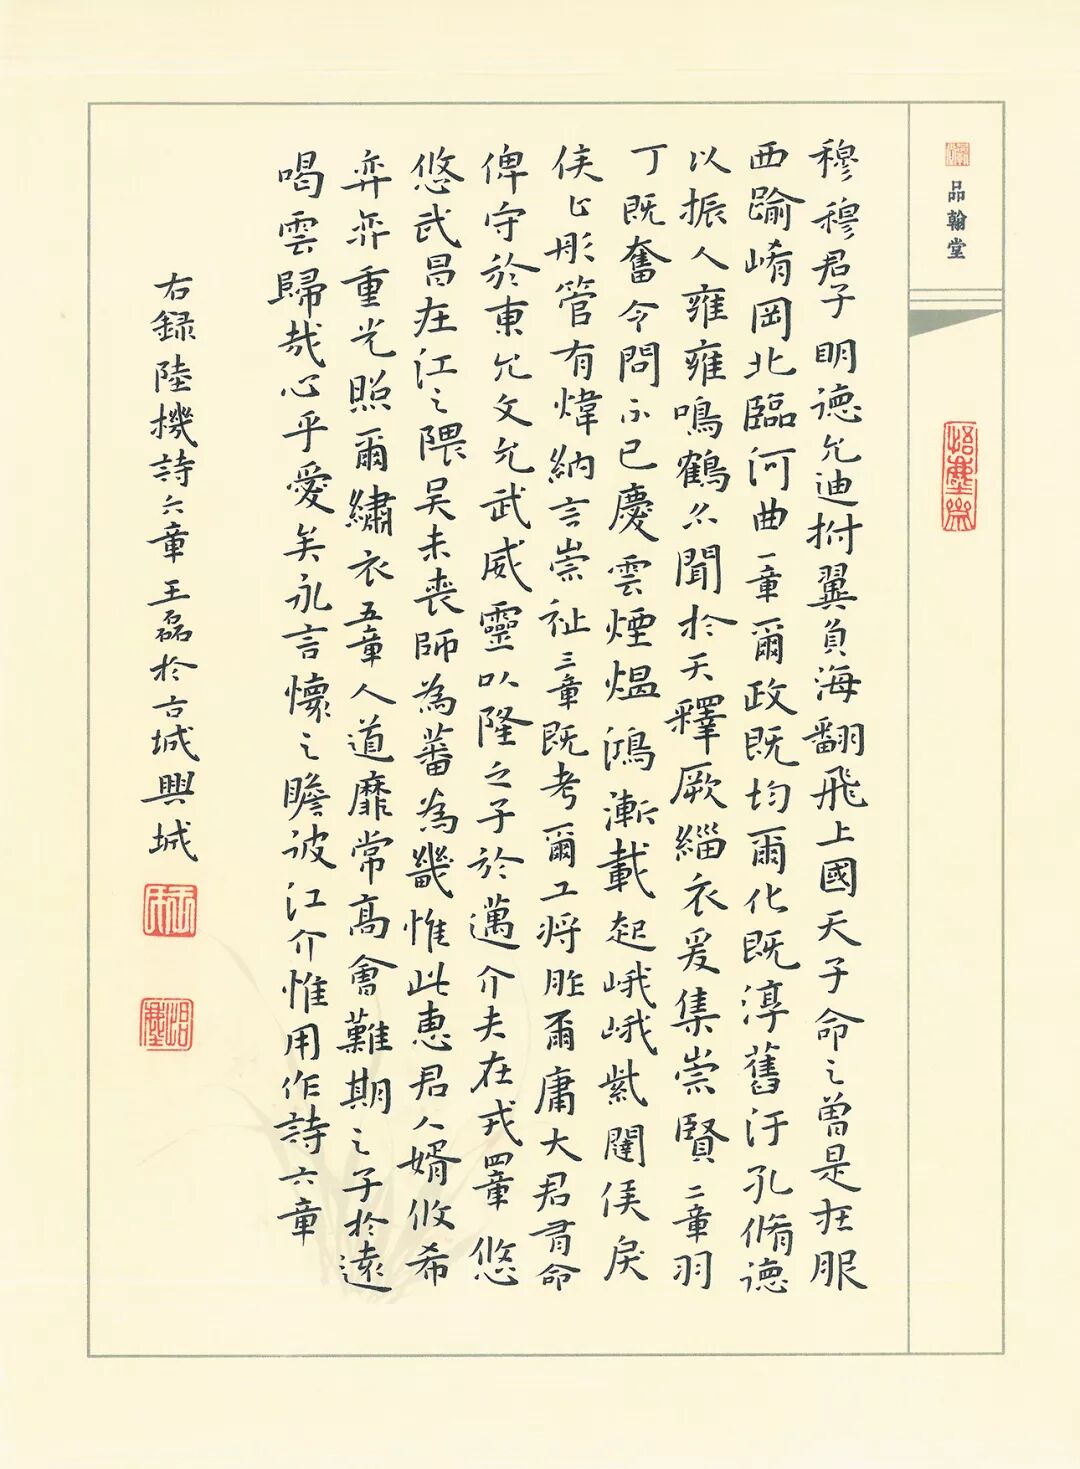 品翰堂
悟塵齋
穆穆君子明德允迪拊翼負海翻飛上國天子命之曾是在服
西踰崤岡北臨河曲一章爾政既均爾化既淳舊汙孔脩德
以振人雍雍鳴鶴亦聞於天釋厥緇衣爰集崇賢二章羽
丁既奮令問不已慶雲煙熅鴻漸載起峨峨紫闥侯戾
侯止彤管有煒納言崇祉三章既考爾工將胙爾庸大君有命
俾守於東允文允武威靈以隆之子於邁介夫在戎四章悠
悠武昌在江之隈吴未喪師為蕃為畿惟此惠君人婿攸希
弈弈重光照爾繡衣五章人道靡常高會難期之子於遠
喝雲歸哉心乎愛矣永言懷之瞻彼江介惟用作詩六章
右録陸機詩六章王磊於古城興城